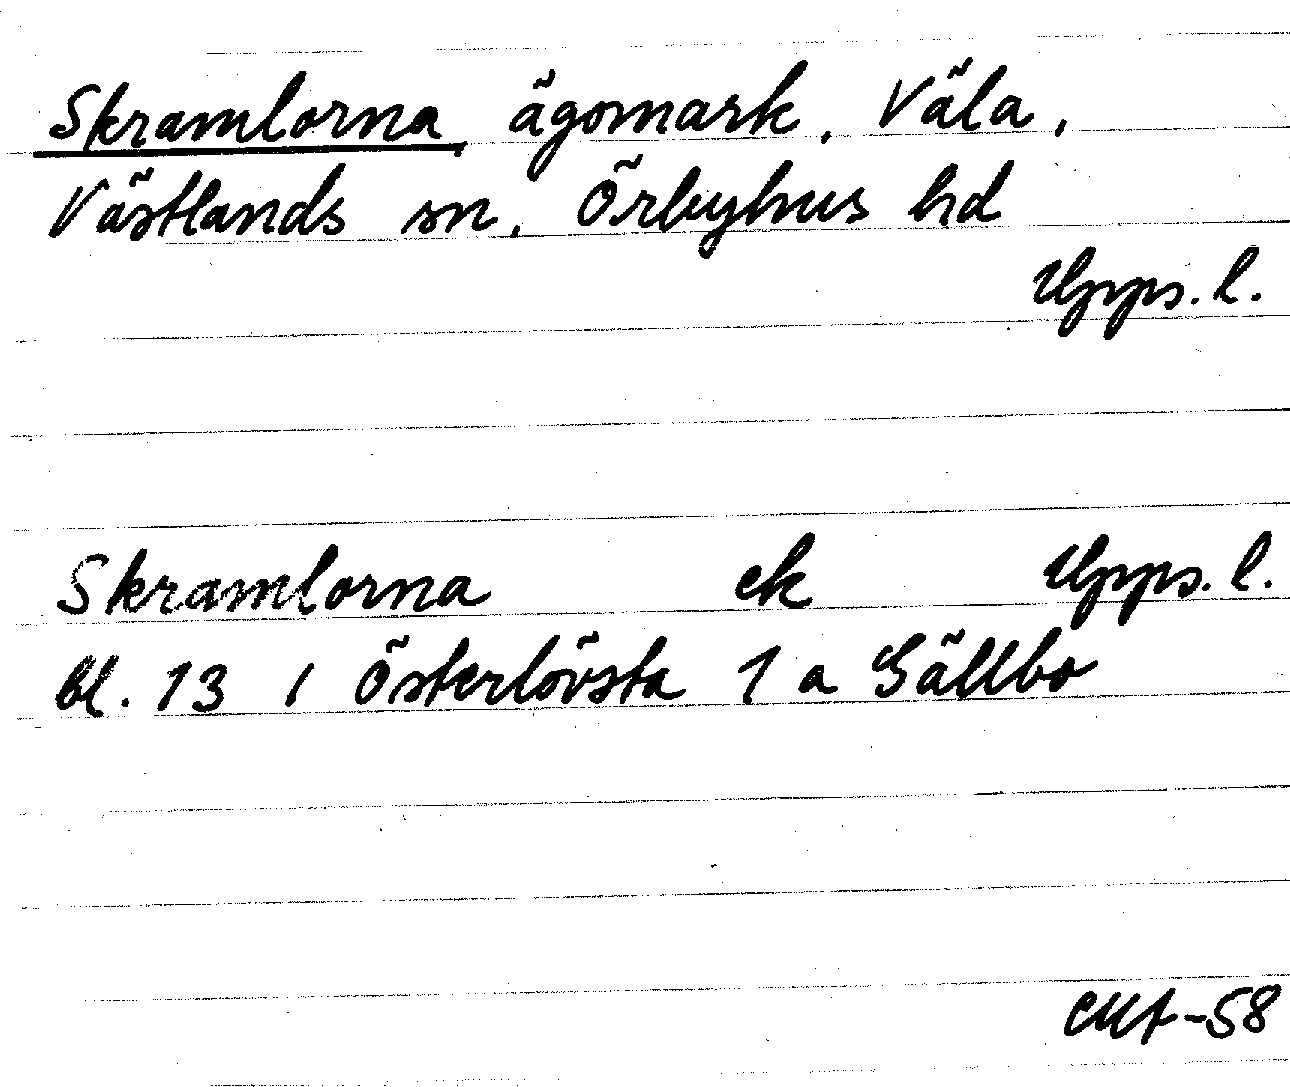 Skramlorna, ägomark, Väla,
Västlands sn, Örbyhus hd
Upps. l.
Skramlorna ek Upps. l.
bl. 13 i Österlövsta 1 a Gällbo
-58